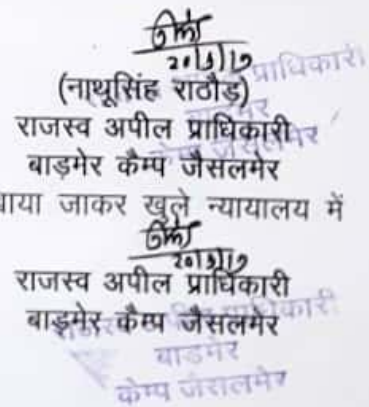 20/3/19
(नाथूसिंह राठौड़)
राजस्व अपील प्राधिकारी
बाड़मेर कैम्प जैसलमेर
जाकर खुले न्यायालय में
20/3/19
राजस्व अपील प्राधिकारी
बाड़मेर कैम्प जैसलमेर
प्राधिकारी
बाडमेर
केम्प जैसलमेर